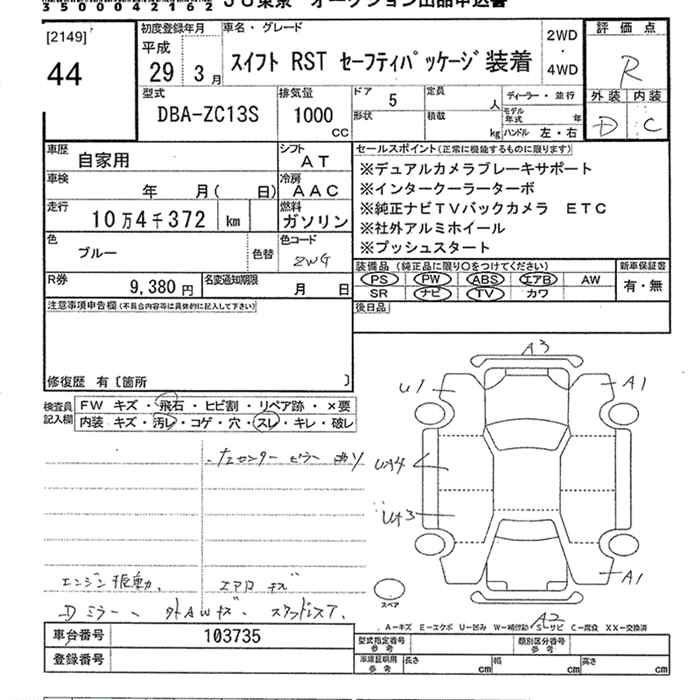 35000042102 JU東京 オークション出品申込書
[2149]
44
初度登録年月
平成
29年 3月
車名・グレード
スイフト RST セーフティパッケージ装着
2WD
・
4WD
評価点
R
外装 内装
D C
型式
DBA-ZC13S
排気量
1000
CC
ドア
5
形状
定員
人
積載
kg
ディーラー・並行
モデル年式 年
ハンドル 左・右
車歴
自家用
シフト
AT
車検
年 月( 日)
冷房
AAC
走行
10万4千372 km
燃料
ガソリン
色
ブルー
色替
色コード
ZWG
R券
9,380 円
名変通知期限
月 日
セールスポイント(正常に機能するものに限ります)
※デュアルカメラブレーキサポート
※インタークーラーターボ
※純正ナビTVバックカメラ ETC
※社外アルミホイール
※プッシュスタート
装備品 (純正品に限り○をつけてください)
PS PW ABS エアB AW
SR ナビ TV カワ
新車保証書
有・無
後日品
注意事項申告欄(不具合内容等は具体的に記入して下さい)
修復歴 有〔箇所 〕
検査員
記入欄
FW キズ・飛石・ヒビ割・リペア跡・×要
内装 キズ・汚レ・コゲ・穴・スレ・キレ・破レ
エンジン振動、
エアロキズ
Dミラー、外AWキズ、
A3
U1
A1
U3
A1
A2
スペア
A-キズ E-エクボ U-凹み W-補修跡 S-サビ C-腐食 XX-交換済
車台番号
103735
登録番号
型式指定番号
参考
類別区分番号
参考
車庫証明用
参考
長さ cm 幅 cm 高さ cm